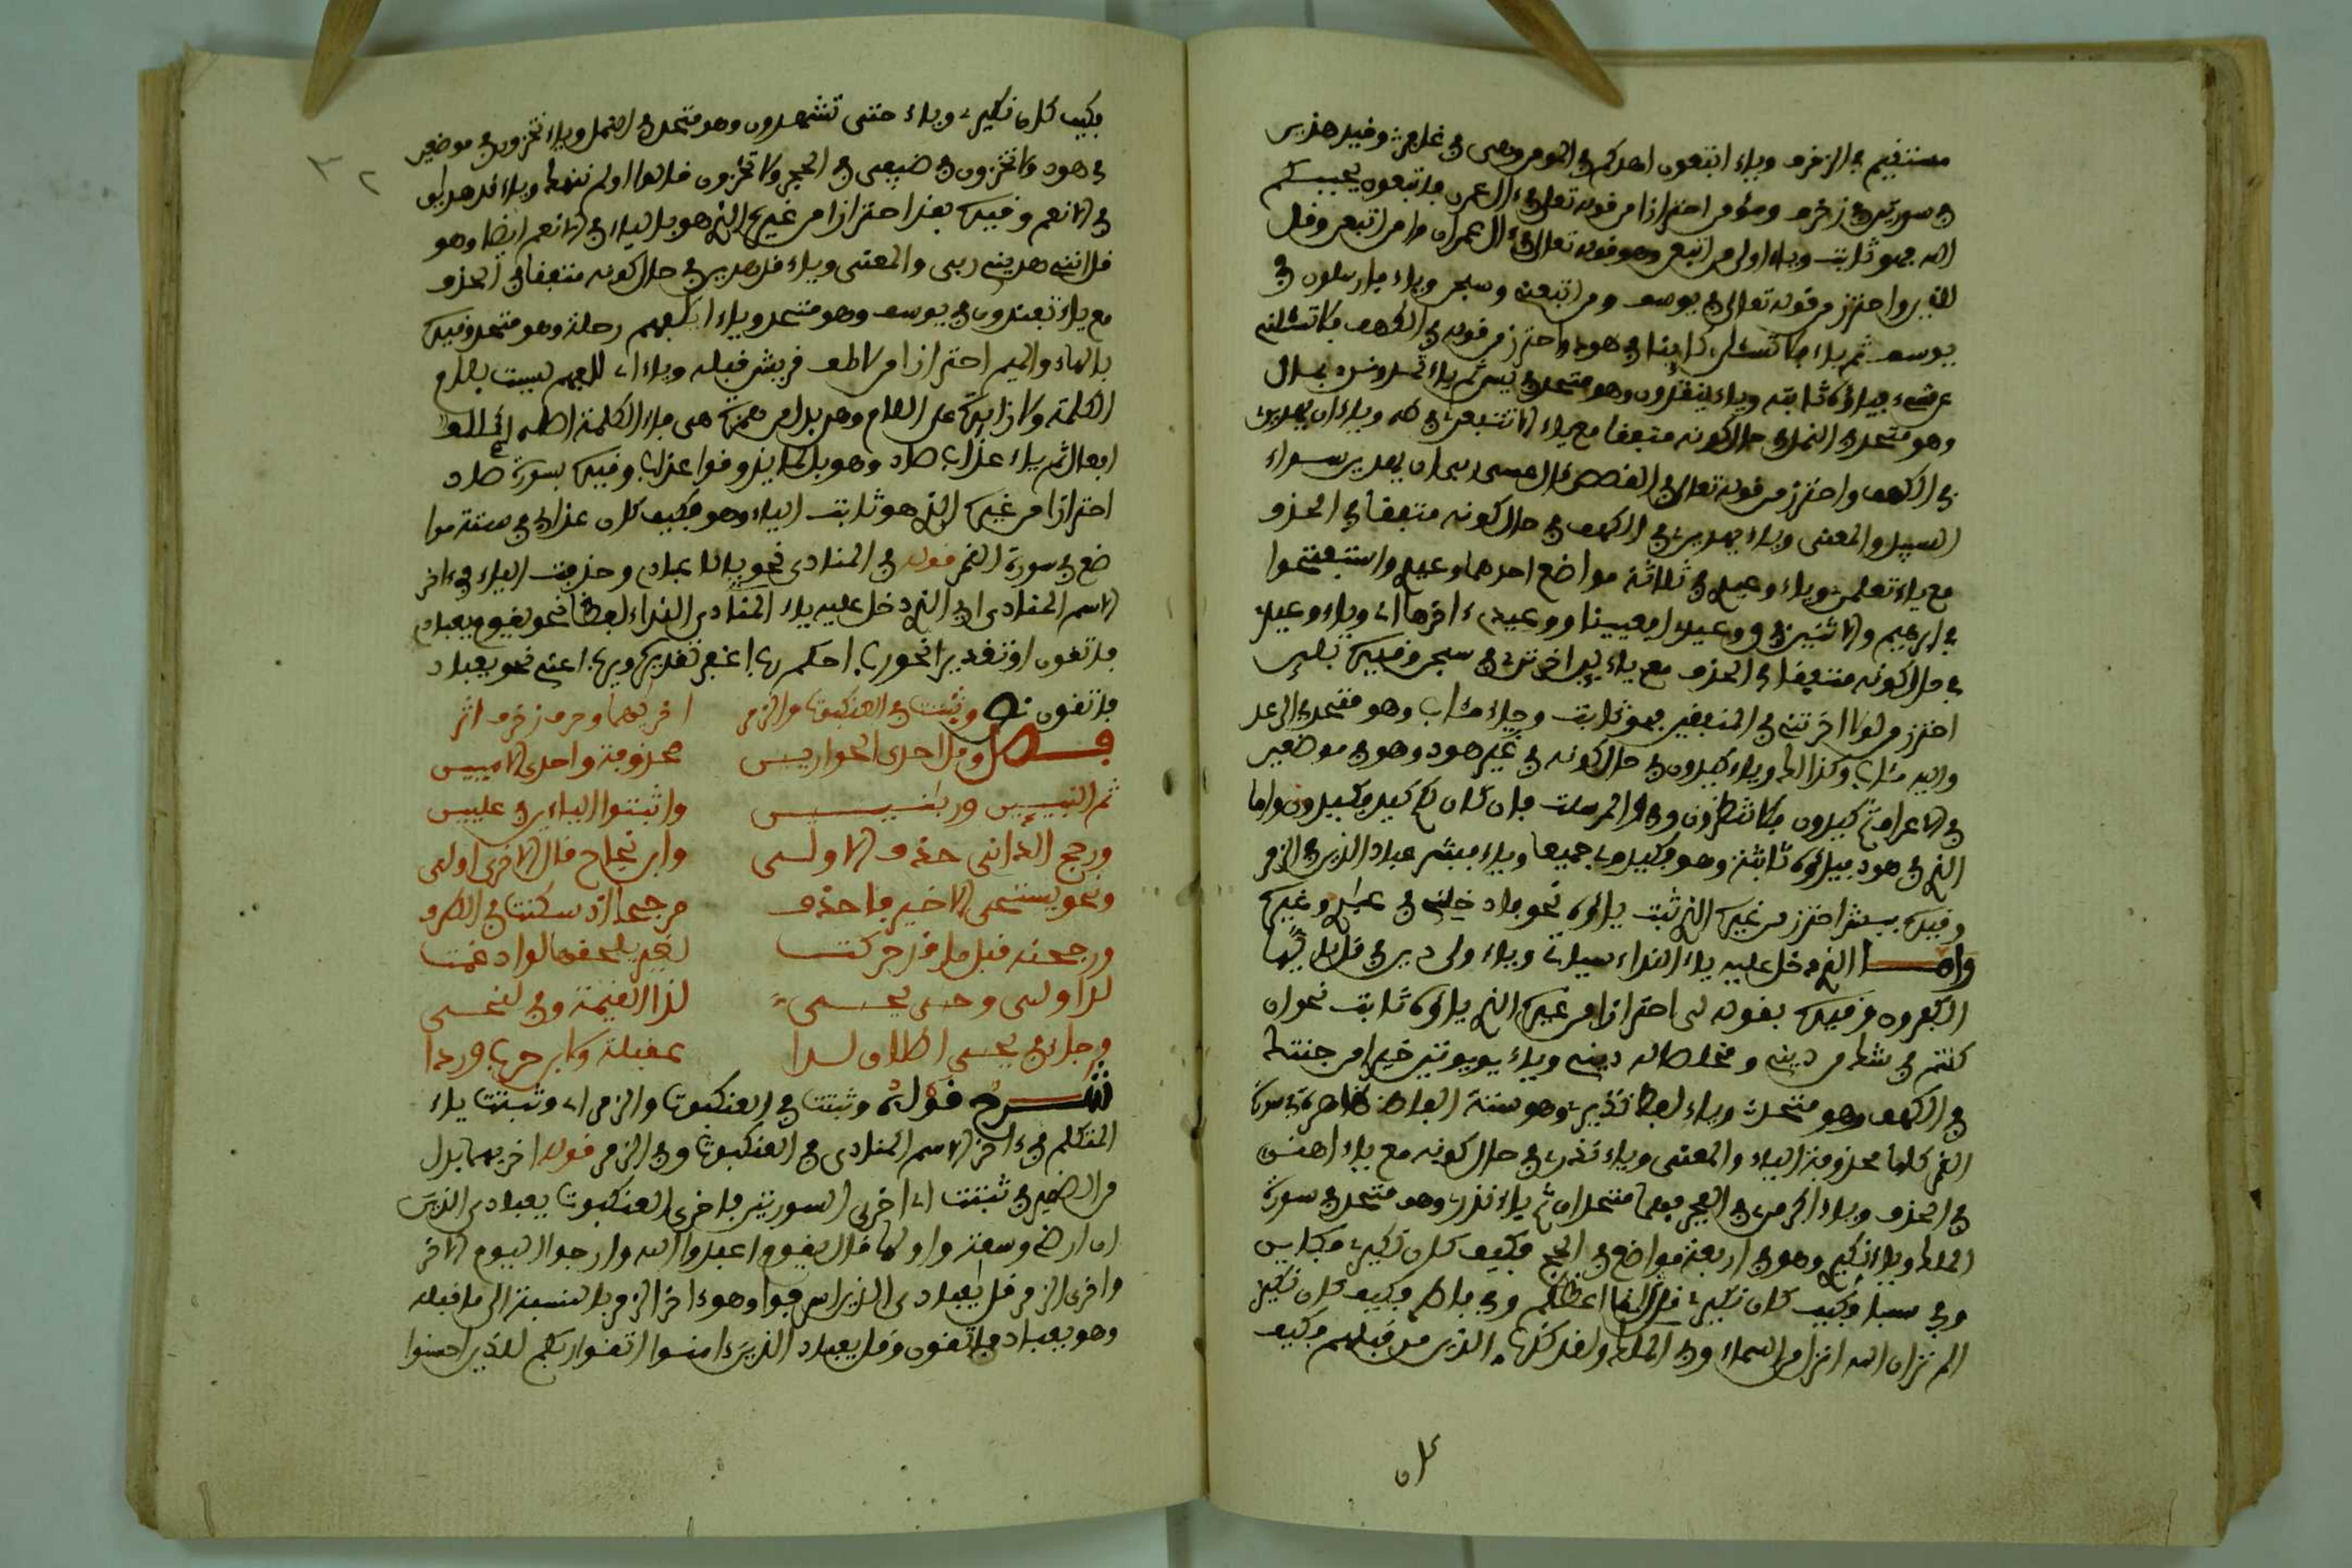 مستقيم في الزخرف وياء اتبعون اهدكم في المومن وهي في غافر وقيد هذين
في سورتين في زخرف ومؤمن احترازا من قوله تعالى في ءال عمرن فاتبعون يحببكم
الله فهو ثابت وياء اولى من اتبعن وهو قوله تعالى في ءال عمران ومن اتبعن وقل
للذين واحترز من قوله تعالى في يوسف ومن اتبعني وسبحن وياء فارسلون في
يوسف ثم ياء فلا تسئلن كايفا في هود واحترز من قوله في الكهف فلا تسئلني
عن شيء فياؤه ثابتة وياء ينقذون وهو متحد في يس ثم ياء تمدونن بمال
وهو متحد في النمل في حال كونه متبعا مع ياء الا تتبعن في طه وياء ان يهدين
في الكهف واحترز من قوله تعالى في القصص قال عسى ربي ان يهديني سواء
السبيل والمعنى وياء يهدين في الكهف في حال كونه متبعا في الحذف
مع ياء تعلمن وياء وعيد في ثلاثة مواضع احدها وعيد واستفتحوا
في ابرهيم والاثنين في ق وعيد افعيينا ووعيد ءاخرها اي وياء وعيد
في حال كونه متبعا في الحذف مع ياء لين اخرتن في سبحن وقيده بلين
احترز من لولا اخرتني في المنفقين فهو ثابت وياء مئاب وهو متحد في الرعد
واليه مئاب وكذا لك وياء كيدون في حال كونه في غير هود وهو في موضعين
في الاعراف ثم كيدون فلا تنظرون وفي والمرسلت فان كان لكم كيد فكيدون واما
الذي في هود فياؤه ثابتة وهو فكيدوني جميعا وياء فبشر عباد الذين في الزمر
وقيده ببشر احترز من غيره الذي ثبت ياؤه نحو فادخلي في عبدي وغيره
وامــا الذي دخل عليه ياء النداء سيات وياء ولي دين في قل يايها
الكفرون وقيده بقوله لي احترازا من غيره الذي ياؤه ثابت نحو ان
كنتم في شك من ديني ومخلصا له ديني وياء يوتين خيرا من جنتك
في الكهف وهو متحد وياء لفظ نذير وهو ستة الفاظ كلها في سورة
القمر كلها محذوفة الياء والمعنى وياء نذر في حال كونه مع ياء اهنن
في الحذف وياء اكرمن في الفجر فهما متحدان ثم ياء نذر وهو متحد في سورة
الملك وياء نكير وهو في اربعة مواضع في الحج فكيف كان نكير فكاين
وفي سبا فكيف كان نكير قل انما اعظكم وفي فاطر فكيف كان نكير
الم تر ان الله انزل من السماء وفي الملك ولقد كذب الذين من قبلهم فكيف
كان
فكيف كان نكير وياء حتى تشهدون وهو متحد في النمل وياء تخزون في موضعين
في هود ولا تخزون في ضيفي في الحجر ولا تخزون قالوا اولم ننهك وياء قد هدان
في الانعم وقيده بقد احترازا من غيره الذي هو بالياء في الانعم ايضا وهو
قل انني هديني ربي والمعنى وياء قد هدين في حال كونه متبعا في الحذف
مع ياء تفندون في يوسف وهو متحد وياء ايلفهم رحلة وهو متحد وقيده
بالهاء والميم احترازا من لايلف قريش قبله وياء ايلفهم ليست بلام
الكلمة ولا زائدة على اللام وهي بدل من همزة هي فاء الكلمة
افعال ثم ياء عذاب صاد وهو بل لما يذوقوا عذاب وقيده بسورة صاد
احترازا من غيره الذي هو ثابت الياء وهو فكيف كان عذابي في ستة موا
ضع في سورة القمر قوله في المنادى نحو ياعباد وحذفت الياء في ءاخر
الاسم المنادى اي الذي دخل عليه ياء المنادى النداء لفظا نحو يقوم ويعباد
فاتقون او تقديرا نحو رب احكم رب اغفر تقديره يرب اعني نحو يعباد
فاتقون نص وثبتت في العنكبوت والزمر اخريهما وحرف زخرف اثر
فــصل وقل احدى الحوارييــن محذوفة واحدى الاميين
ثم النبيين وربنيــن واثبتوا الياءين في عليين
ورجح الداني حذف الاولــى وابن نجاح قال الاخرى اولى
ونحو يستحي الاخير فاحذف مرجحا اذ سكنت في الطرف
ورجحنه قبل ما قد حركت لغير يلحقها لو ادغمت
كذا ولي وحي يحيــي لذا القيمة وفي لنحيــي
وجاء في يحيي اطلاق لدا عقيلة وابن حرب وردا
شــرح قوله وثبتت في العنكبوت والزمر اي وثبتت ياء
المتكلم في ءاخر الاسم المنادى في العنكبوت وفي الزمر قوله اخريهما بدل
من الضمير في ثبتت اي اخرى السورتين فاخرى العنكبوت يعبادي الذين
ان ارضي وسعة واولها فقال يقوم اعبدوا الله وارجوا اليوم الاخر
واخرى الزمر قل يعبادي الذين اسرفوا وهو ءاخر الزمر بالنسبة الى ما قبله
وهو يعباد فاتقون وقل يعباد الذين ءامنوا اتقوا ربكم للذين احسنوا